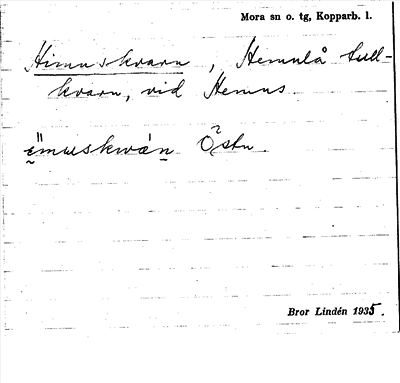 Mora sn o. tg, Kopparb. l.
Himuskvarn, Hemulå tull-
kvarn, vid Hemus.
ämuskwán Östn.
Bror Lindén 1935.